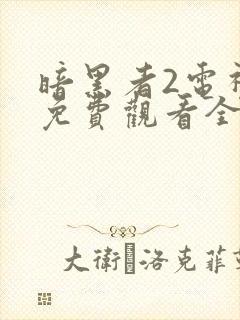 暗黑者2電視
免費觀看全
大衛·洛克菲